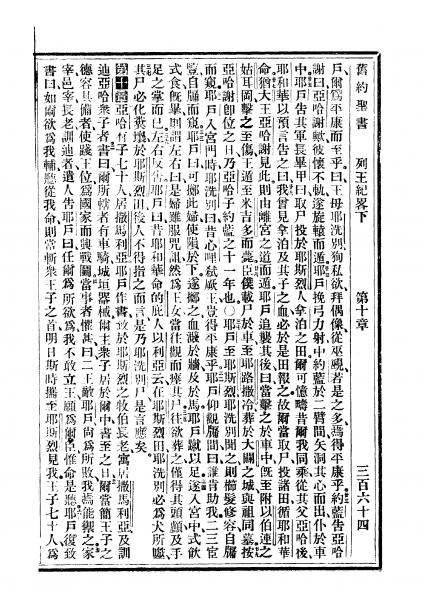 舊約聖書 列王紀畧下 第十章 三百六十四
戶、爾爲平康而至乎、曰、王母耶洗別、狥私欲、拜偶像、從巫覡、若是之多、焉得平康乎、約藍告亞哈
謝曰、亞哈謝歟、彼懷不軌、遂旋轅而遁、耶戶挽弓力射、中約藍於二臂間、矢洞其心而出、仆於車
中、耶戶告其軍長畢甲曰、取尸投於耶斯烈人拿泊之田、爾可憶疇昔我同爾乘從其父亞哈後
耶和華以預言告之曰、我曾見拿泊及其子之血、必於是田報之、故爾當取尸投諸田、循耶和華
命、猶大王亞哈謝見此、則由離宮之道而遁、耶戶追襲其後、曰、當擊之於車中、旣至附以伯連之
姑耳岡、擊之至傷、王遁至米吉多而薨、臣僕載尸於車、至耶路撒冷、葬於大闢之城、與祖同墓、按
亞哈謝卽位之日、乃亞哈子約藍之十一年也、○耶戶至耶斯烈、耶洗別聞之、則櫛髮修容、自牖
而窺、耶戶入宮門時、耶洗別曰、昔心哩弒厥王、豈得平康乎、耶戶仰觀牖間、曰、誰肯助我、二三宦
豎自牖而窺、耶戶曰、可擲此婦、使隕於下、遂擲之、血濺於牆及於馬、耶戶蹴以足、遂入宮中、式飲
式食、旣畢、則謂左右曰、是婦雖服咒詛、然爲王女、當往觀而瘞其尸、往欲葬之、僅得其頭顱及手
足之掌而已、左右反告、耶戶曰、昔耶和華命的庇人以利亞云、在耶斯烈田、耶洗別必爲犬所噬
其尸必化糞壤、於耶斯烈田、後人不得指之而言、是乃耶洗別尸、是言應矣
第十章 亞哈有子七十人、居撒馬利亞、耶戶作書、致於耶斯烈之牧伯長老、寓居撒馬利亞、及訓
迪亞哈衆子者、書曰、爾所轄者、有車騎城垣器械、爾主衆子、居於爾中、書至之日、爾當簡王子之
德容具備者、使踐王位、爲國家而與戰鬬、當事者懼甚、曰、二王敵耶戶、尙爲所敗、我焉能禦之、家
宰邑宰長老訓迪者、遣人告耶戶曰、任爾爲所欲爲、我不敢立王、願爲爾臣、惟命是聽、耶戶復致
書曰、如爾欲爲我輔、聽從我命、則當斬衆王子之首、明日斯時攜至耶斯烈見我、王子七十人、爲